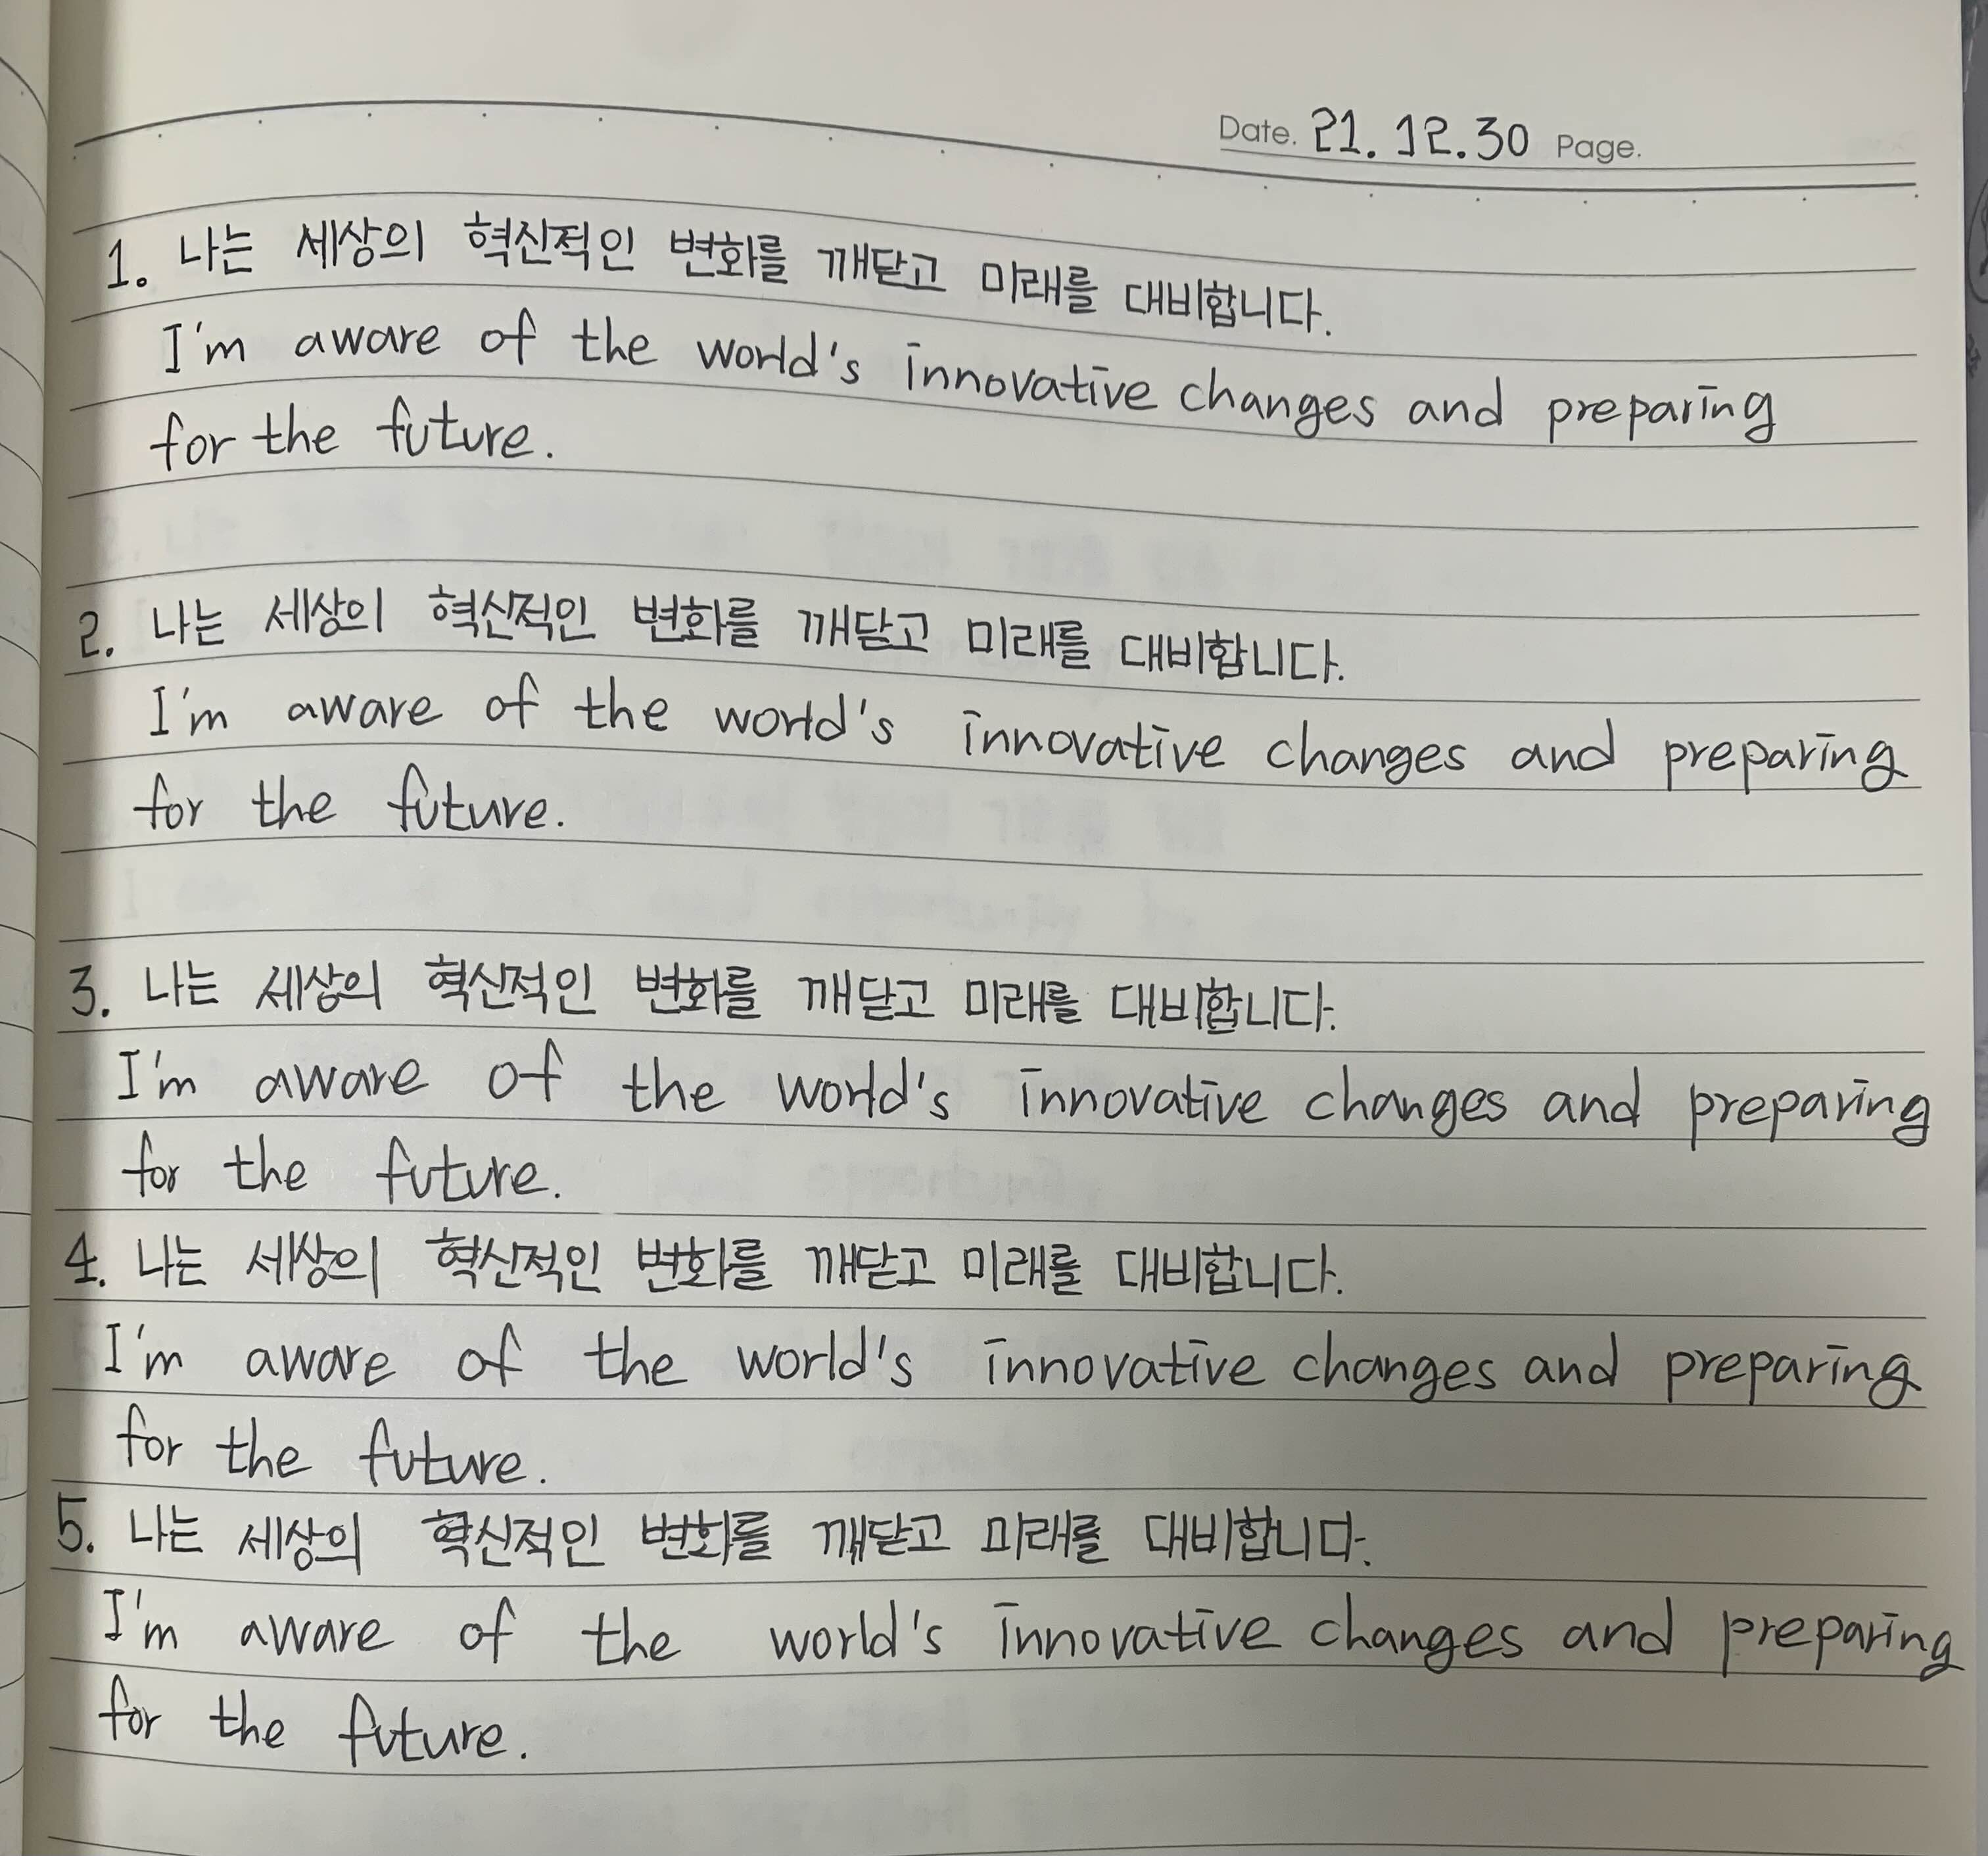 Date. 21. 12. 30 Page.
1. 나는 세상의 혁신적인 변화를 깨닫고 미래를 대비합니다.
I'm aware of the world's innovative changes and preparing
for the future.
2. 나는 세상의 혁신적인 변화를 깨닫고 미래를 대비합니다.
I'm aware of the world's innovative changes and preparing
for the future.
3. 나는 세상의 혁신적인 변화를 깨닫고 미래를 대비합니다.
I'm aware of the world's innovative changes and preparing
for the future.
4. 나는 세상의 혁신적인 변화를 깨닫고 미래를 대비합니다.
I'm aware of the world's innovative changes and preparing
for the future.
5. 나는 세상의 혁신적인 변화를 깨닫고 미래를 대비합니다.
I'm aware of the world's innovative changes and preparing
for the future.